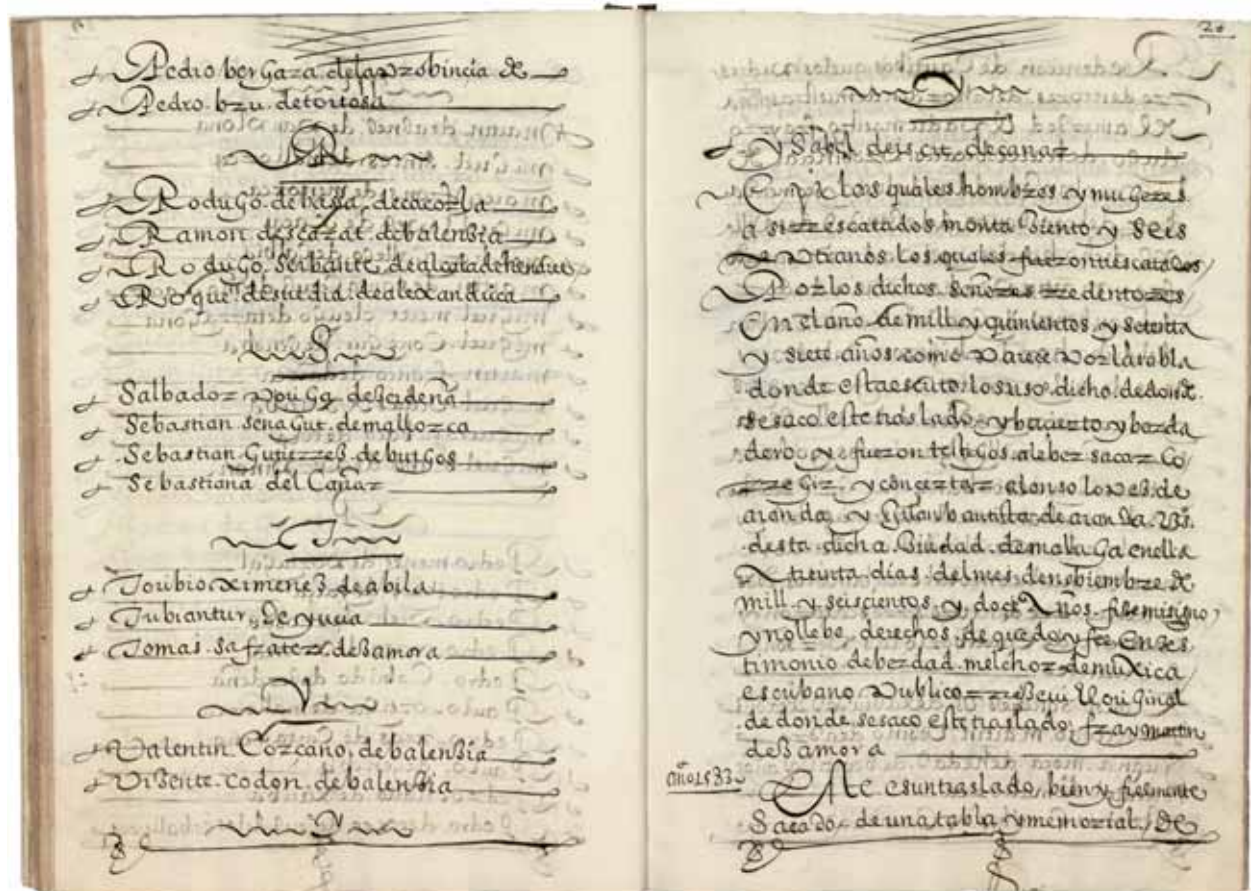 Pedro bergaza. dela probincia de
Pedro. bzu. detortosa
R
Rodrigo. de baga, de cacorla
Ramon descazat. debalensia
Rodrigo. serbante. dealcala dehenares
Roque. desuedia. dealexandria
S
Salbador pouga deserdeña
Sebastian senagut. demallorca
Sebastian Gutierres. deburgos
Sebastiana del Cañar
T
Toribio ximenes deabila
Tubiantur, de
Tomas. safrater. desamora
V
Valentin Corcano, debalensia
Visente. codon, debalensia
Y
20
Y
Ysabel decanar
los quales hombres y mugeres
asi rrescatados monta siento y seis
los quales fueron rrescatados
Por los dichos. señores rredentores
En el año de mill y quinientos y setenta
y siete años como parece por la tabla
donde esta escrito lo suso dicho de donde
se saco este traslado y ba cierto y berda
dero y fueron testigos a le ber sacar co
rregir y concertar alonso lopes de
aranda y Juan bautista de aranda
desta dicha siudad de mallaga en ella
A treinta dias del mes denobiembre de
mill y seiscientos y doce Años fise misigno,
y no llebe derechos de que doy fee En tes
timonio de berdad melchor demuxica
escribano Publico rresevi El original
de donde se saco este traslado, fray martin
desamora
año 1583
este es un traslado, bien y fielmente
Sacado de una tabla y memorial, de